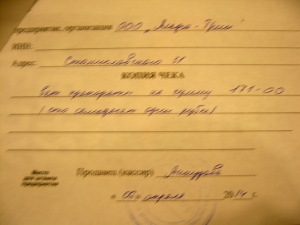 Предприятие, организация ООО
ИНН
Адрес: Станиславского
КОПИЯ ЧЕКА
Чек на сумму 171-00
(сто семьдесят один рубль)
Место для штампа предприятия
Продавец (кассир)
« 06 » апреля 2014 г.